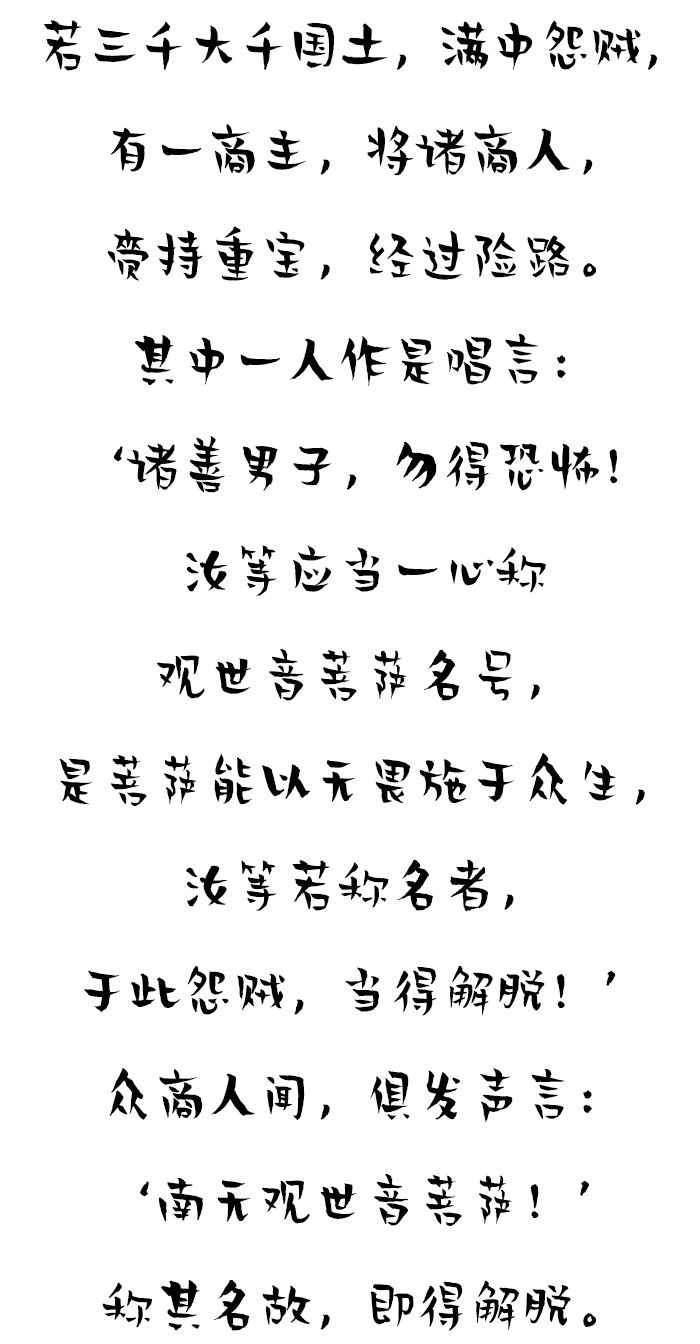 若三千大千国土，满中怨贼，
有一商主，将诸商人，
赍持重宝，经过险路。
其中一人作是唱言：
‘诸善男子，勿得恐怖！
汝等应当一心称
观世音菩萨名号，
是菩萨能以无畏施于众生，
汝等若称名者，
于此怨贼，当得解脱！’
众商人闻，俱发声言：
‘南无观世音菩萨！’
称其名故，即得解脱。